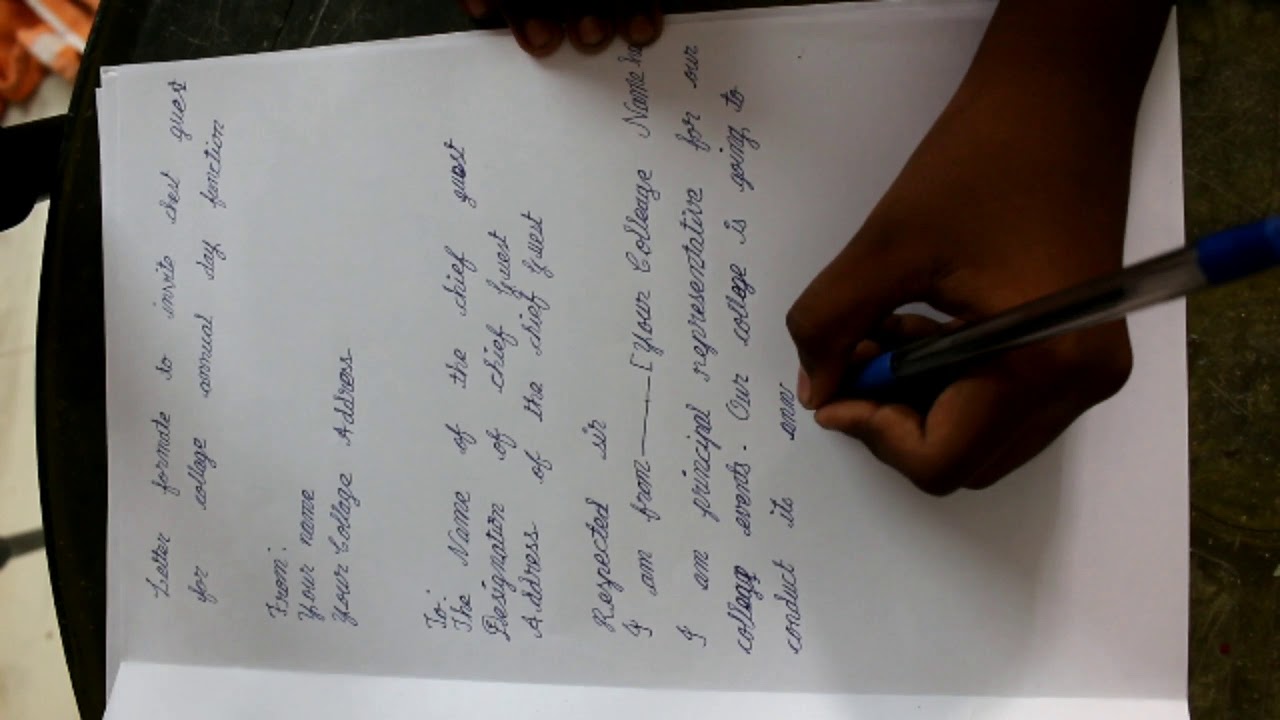 Letter formate to invite chest guest
for collage annual day function
From:
Your name
Your Collage Address
To:
The Name of the chief guest
Designation of chief Guest
Address of the chief Guest
Respected sir
I am from———[Your Colleage Name he
I am principal representative for our
college events. Our college is going to
conduct its enn